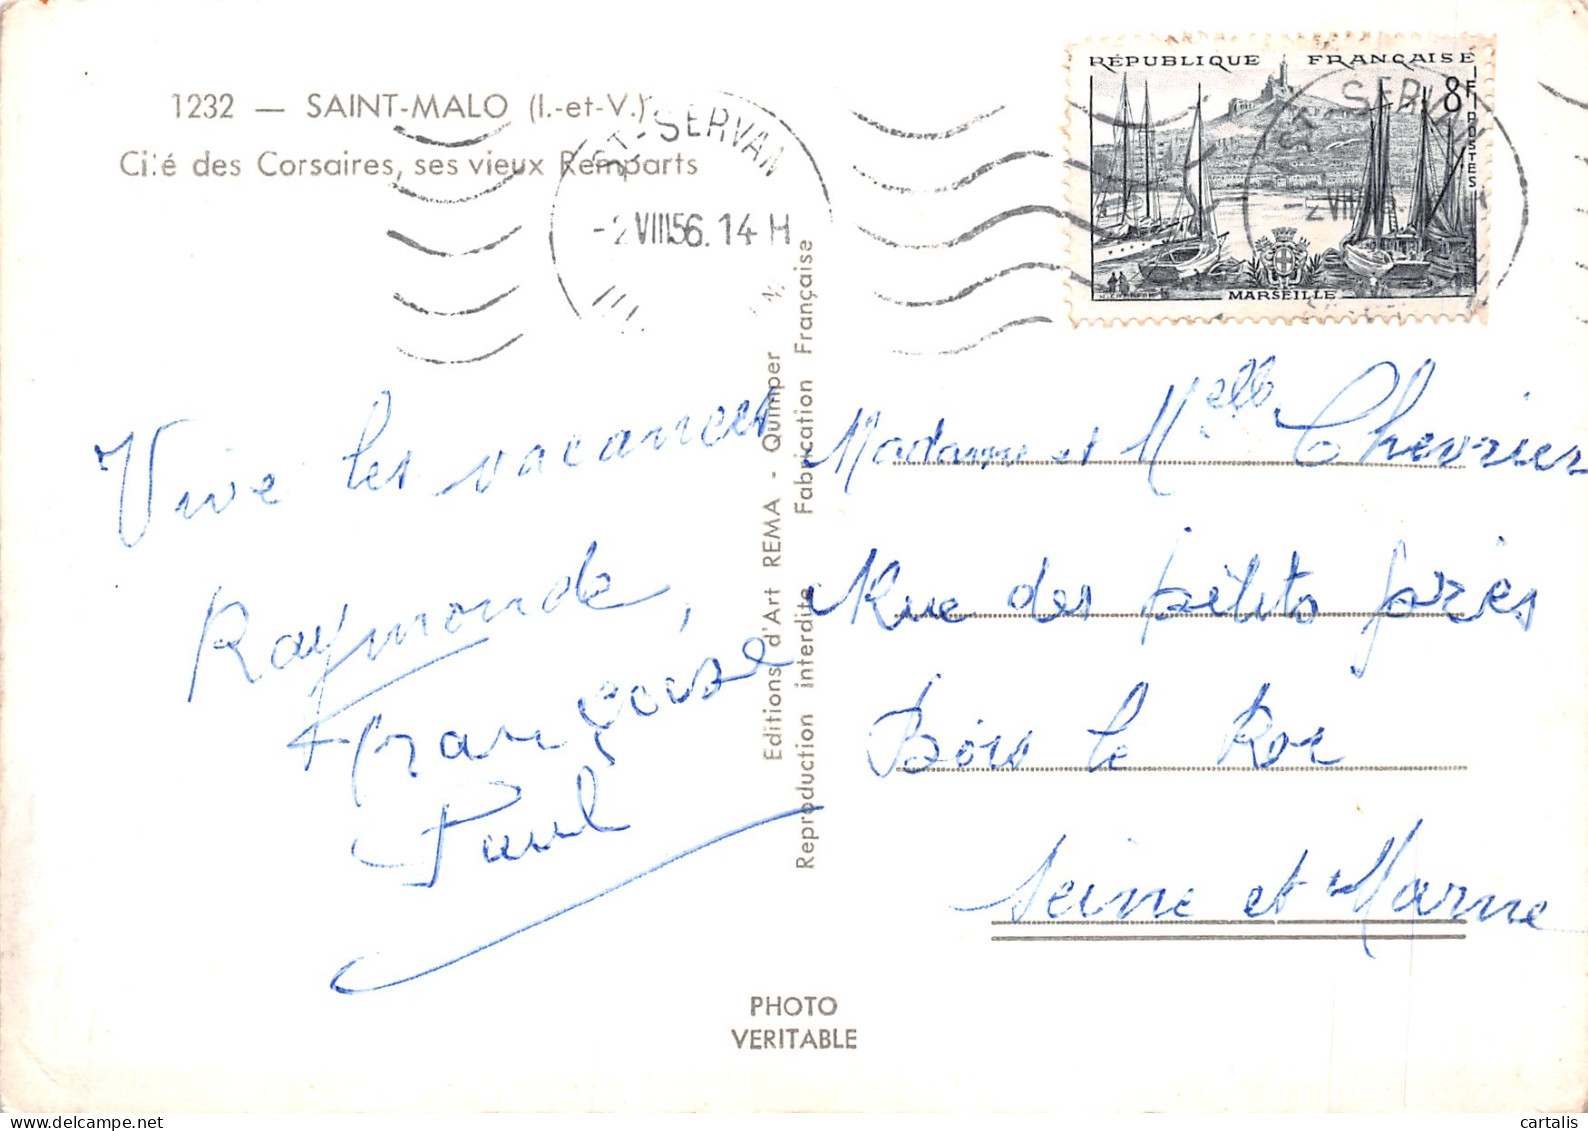 1232 — SAINT-MALO (I.-et-V.)
Cité des Corsaires, ses vieux Remparts
ST-SERVAN
-2 VIII 56. 14 H
RÉPUBLIQUE FRANÇAISE
8F
POSTES
MARSEILLE
ST-SERVAN
-2 VIII
Vive les vacances
Raymonde,
Françoise
Paul
Editions d'Art REMA - Quimper
Reproduction interdite Fabrication Française
Madame et Melle Chevrier
Rue des petits prés
Bois le Roi
Seine et Marne
PHOTO
VERITABLE
www.delcampe.net
cartalis